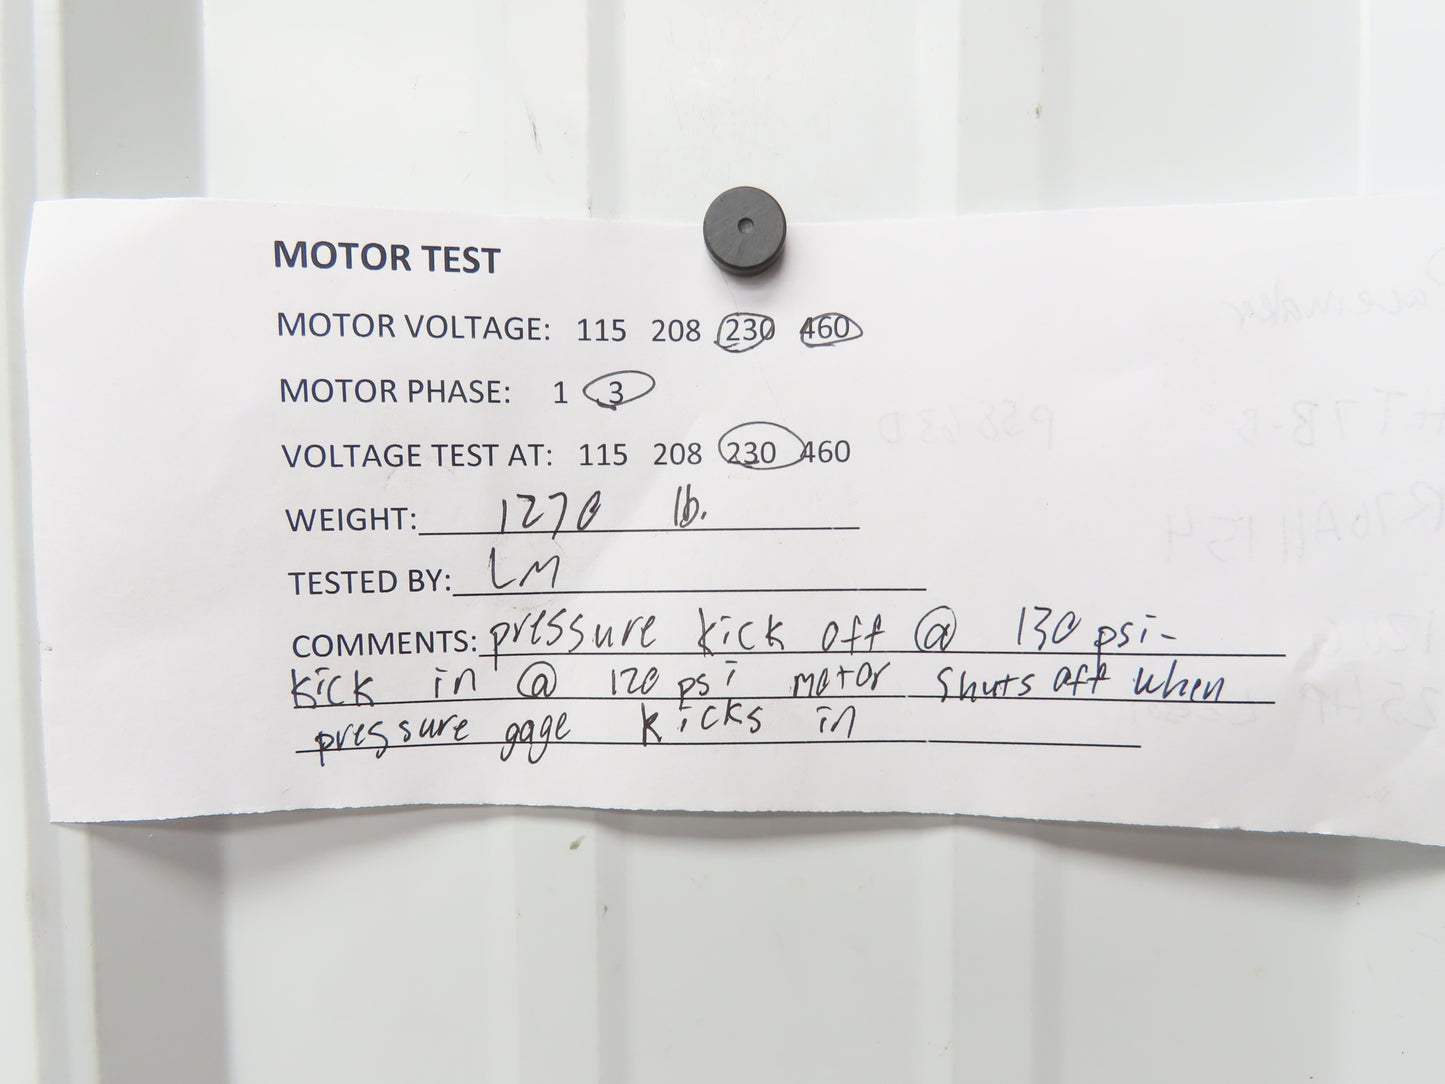 MOTOR TEST
MOTOR VOLTAGE: 115 208 230 460
MOTOR PHASE: 1 3
VOLTAGE TEST AT: 115 208 230 460
WEIGHT: 1270 lb.
TESTED BY: LM
COMMENTS: pressure kick off @ 130 psi-
kick in @ 120 psi motor shuts off when
pressure gage kicks in